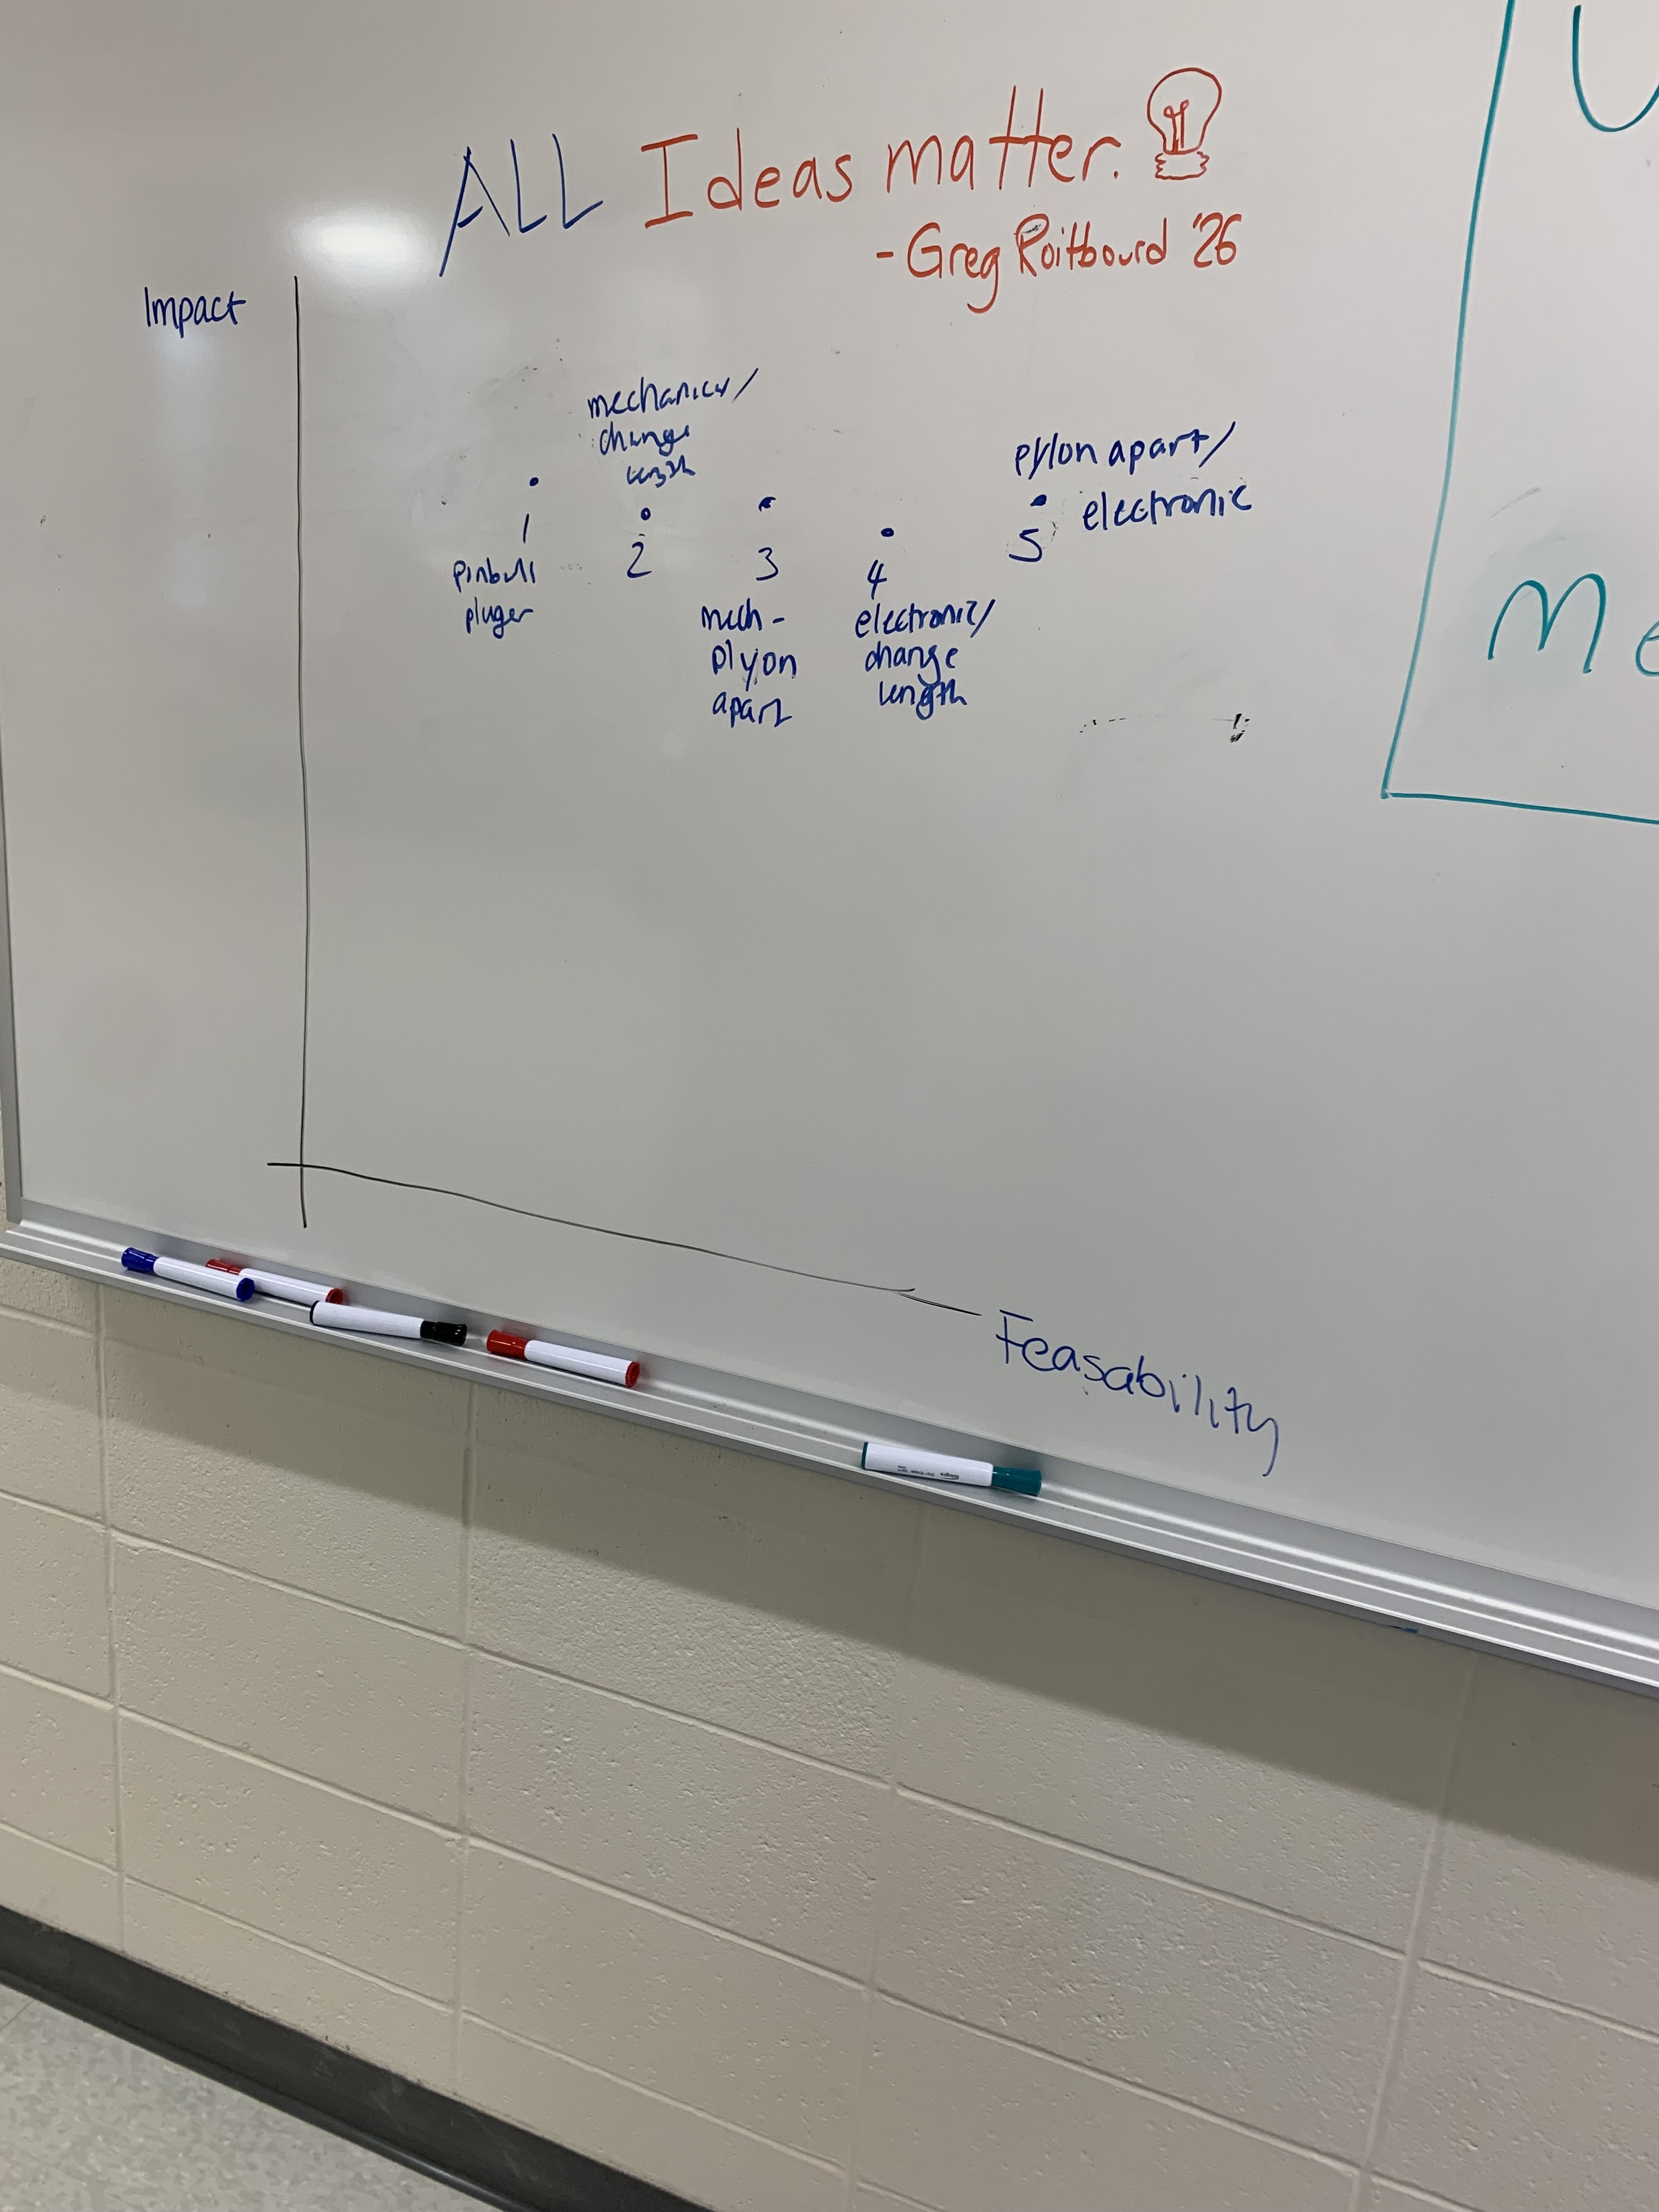 ALL Ideas matter.
- Greg Roitbourd '26
Impact
mechanics/
change
length
pylon apart/
electronic
1
pinball
pluger
2
3
mech-
plyon
apart
4
electronic/
change
length
5
Me
Feasability